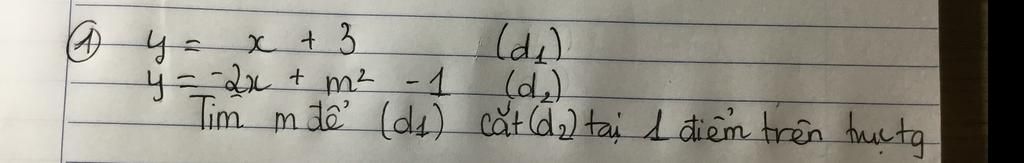 ① y = x + 3 (d1)
y = -2x + m² - 1 (d2)
Tìm m để (d1) cắt (d2) tại 1 điểm trên trục tg